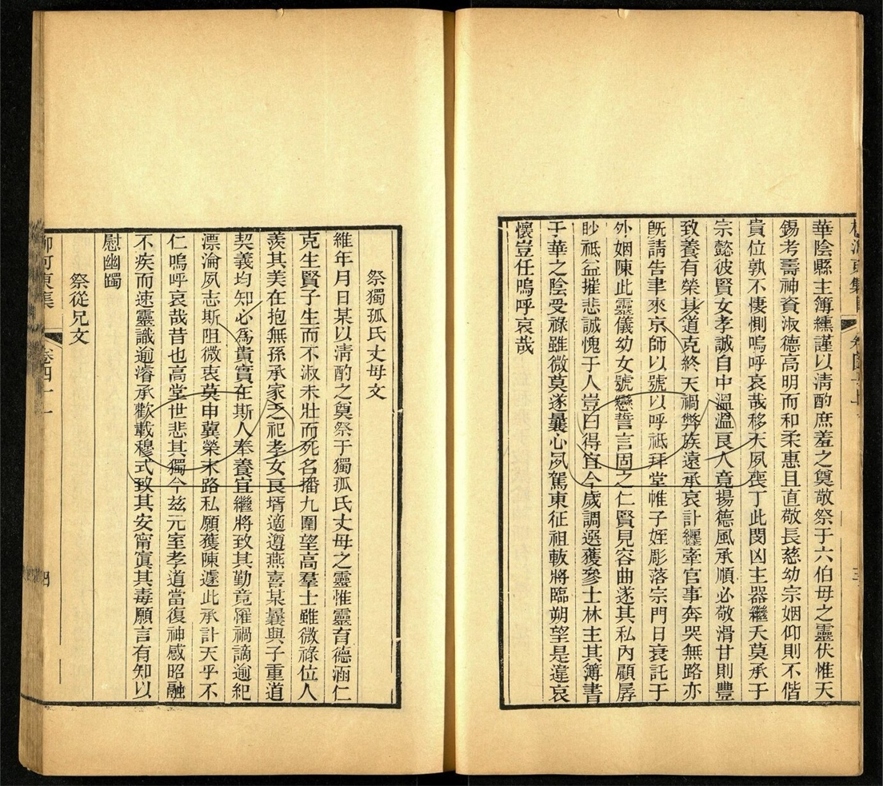 華陰縣主簿纁謹以清酌庶羞之奠敬祭于六伯母之靈伏惟天
錫考壽神資淑德高明而和柔惠且直敬長慈幼宗姻仰則不偕
貴位孰不悽惻嗚呼哀哉移天夙喪丁此閔凶主器繼夭莫承于
宗懿彼賢女孝誠自中溫溫良人竟揚德風承順必敬滑甘則豐
致養有榮其道克終天禍弊族遠承哀訃纏牽官事奔哭無路亦
旣請告聿來京師以號以呼祗拜堂帷子姪彫落宗門日衰託于
外姻陳此靈儀幼女號戀誓言固之仁賢見容曲遂其私內顧孱
眇祗益摧悲誠愧于人豈曰得宜今歲調選獲參士林主其簿書
于華之陰受祿雖微莫遂曩心夙駕東征祖軷將臨朔望是違哀
懷豈任嗚呼哀哉
祭獨孤氏丈母文
維年月日某以淸酌之奠祭于獨孤氏丈母之靈惟靈育德涵仁
克生賢子生而不淑未壯而死名播九圍望高羣士雖微祿位人
羨其美在抱無孫承家乏祀孝女良壻適遵燕喜某曩與子重道
契義均知必爲貴實在斯人奉養宜繼將致其勤竟罹禍謫逾紀
漂淪夙志斯阻微衷莫申冀榮末路私願獲陳遽此承訃天乎不
仁嗚呼哀哉昔也高堂世悲其獨今玆元室孝道當復神感昭融
不疾而速靈識逾濬承歡載穆式致其安甯寘其毒願言有知以
慰幽躅
祭從兄文
柳河東集
卷四十一
四